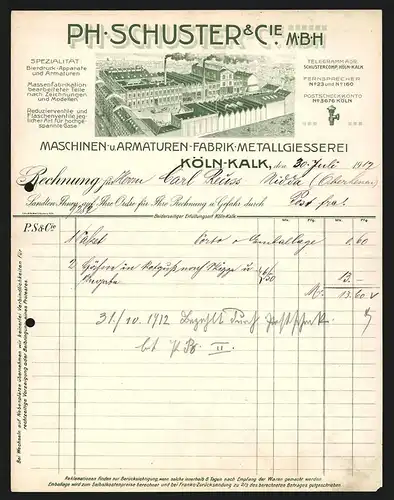 PH. SCHUSTER & CIE. M.B.H
SPEZIALITÄT
Bierdruck-Apparate
und Armaturen
Massenfabrikation
bearbeiteter Teile
nach Zeichnungen
und Modellen.
Reduzierventile und
Flaschenventile jeg-
licher Art für hochge-
spannte Gase
TELEGRAMMADR.
SCHUSTERCOMP. KÖLN-KALK
FERNSPRECHER
No 23 und No 160
POSTSCHECKKONTO
No 3676 KÖLN
MASCHINEN- u. ARMATUREN-FABRIK · METALLGIESSEREI
KÖLN-KALK, den 30. Juli 1912
Rechnung für Herrn Carl Reuss Nidda (Oberhessen)
Sandten Ihnen auf Ihre Order für Ihre Rechnung u. Gefahr durch Post frei
Beiderseitiger Erfüllungsort Köln-Kalk.
P.S & Cie
1 Porto & Emballage 0.60
2 Hähne in Rotguss nach Skizze 6.50 13.
M. 13.60
31/10. 1912 Bezahlt durch Postscheck
II.
Bei Wechseln auf Nebenplätze übernehmen wir keinerlei Verbindlichkeiten für
rechtzeitige Vorzeigung oder Beibringung eines Protestes
Reklamationen finden nur Berücksichtigung, wenn solche innerhalb 8 Tagen nach Empfang der Waren gemacht werden.
Emballage wird zum Selbstkostenpreise berechnet und bei Franko-Zurücksendung zu 2/3 des berechneten Betrages gutgeschrieben.